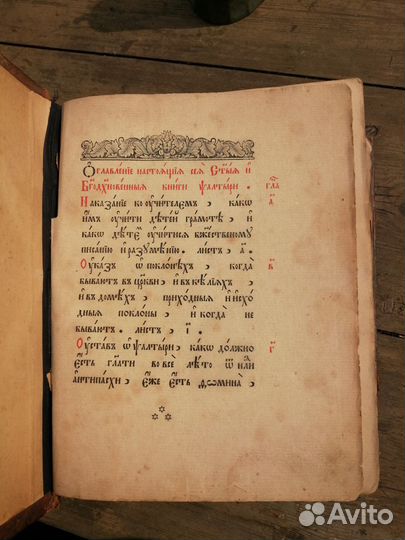 Ѻглавле́нїе настоѧ́щїѧ сеѧ̀ Ст҃ы́ѧ и҆
Бг҃одꙋхнове́нныѧ кни́ги ѱалты́ри . гла̑
Наказа́нїе ко ᲂу҆чи́телемъ , ка́кѡ а҃
и҆̀мъ ᲂу҆чи́ти дѣте́й гра́мотѣ , и҆
ка́кѡ дѣ́темъ ᲂу҆чи́тисѧ бж҃е́ственомꙋ
писа́нїю и҆ разꙋмѣ́нїю . ли́стъ , а҃ .
Оу҆ка́зъ ѡ҆ покло́нѣхъ , когда̀ в҃
быва́ютъ въ цр҃кви и҆ в ке́лїѧхъ ,
и҆ в до́мѣхъ , прихо́дныѧ и҆ и҆схо́
дныѧ покло́ны , и҆ когда̀ не
быва́ютъ . ли́стъ , і҃ .
Оу҆ста́въ ѡ҆ ѱалты́ри , ка́кѡ до́лжно г҃
є҆́сть гл҃ати во всѐ лѣ́то ѿ не́ли
а҆нтипа́схи , є҆́же є҆́сть дѡмина̀ ,
Avito